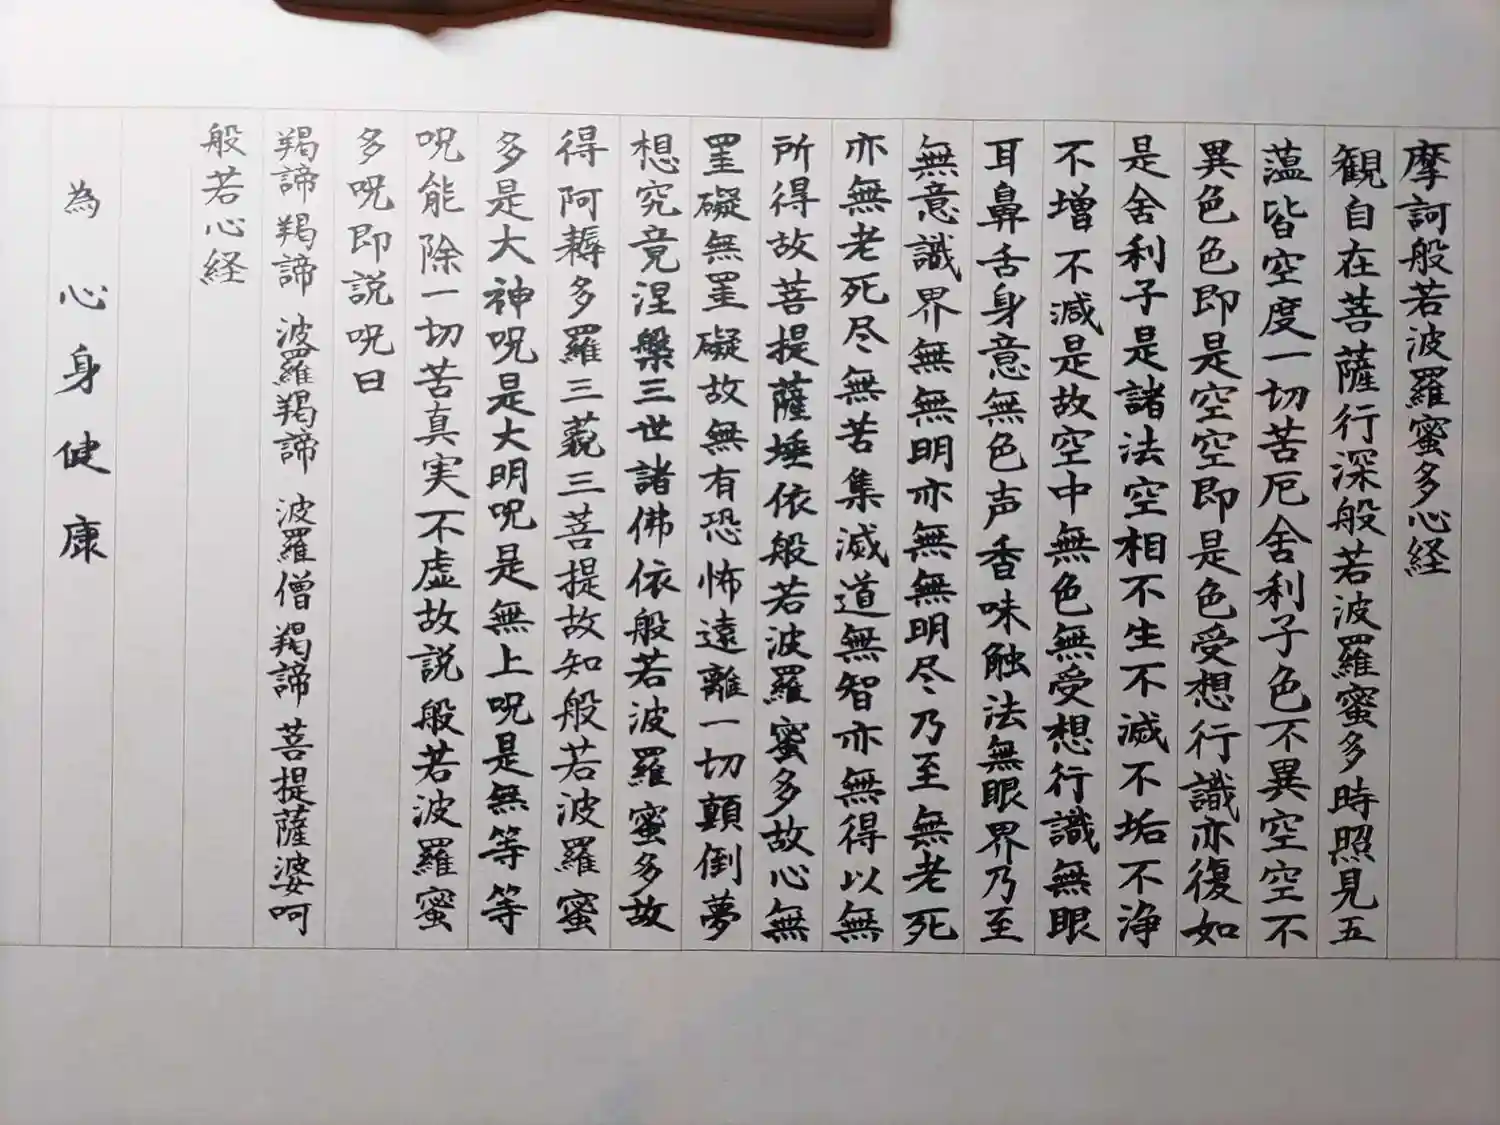 摩訶般若波羅蜜多心経
観自在菩薩行深般若波羅蜜多時照見五
薀皆空度一切苦厄舎利子色不異空空不
異色色即是空空即是色受想行識亦復如
是舎利子是諸法空相不生不滅不垢不浄
不増不減是故空中無色無受想行識無眼
耳鼻舌身意無色声香味触法無眼界乃至
無意識界無無明亦無無明尽乃至無老死
亦無老死尽無苦集滅道無智亦無得以無
所得故菩提薩埵依般若波羅蜜多故心無
罣礙無罣礙故無有恐怖遠離一切顛倒夢
想究竟涅槃三世諸佛依般若波羅蜜多故
得阿耨多羅三藐三菩提故知般若波羅蜜
多是大神呪是大明呪是無上呪是無等等
呪能除一切苦真実不虚故説般若波羅蜜
多呪即説呪曰
羯諦羯諦 波羅羯諦 波羅僧羯諦 菩提薩婆呵
般若心経
為 心身健康